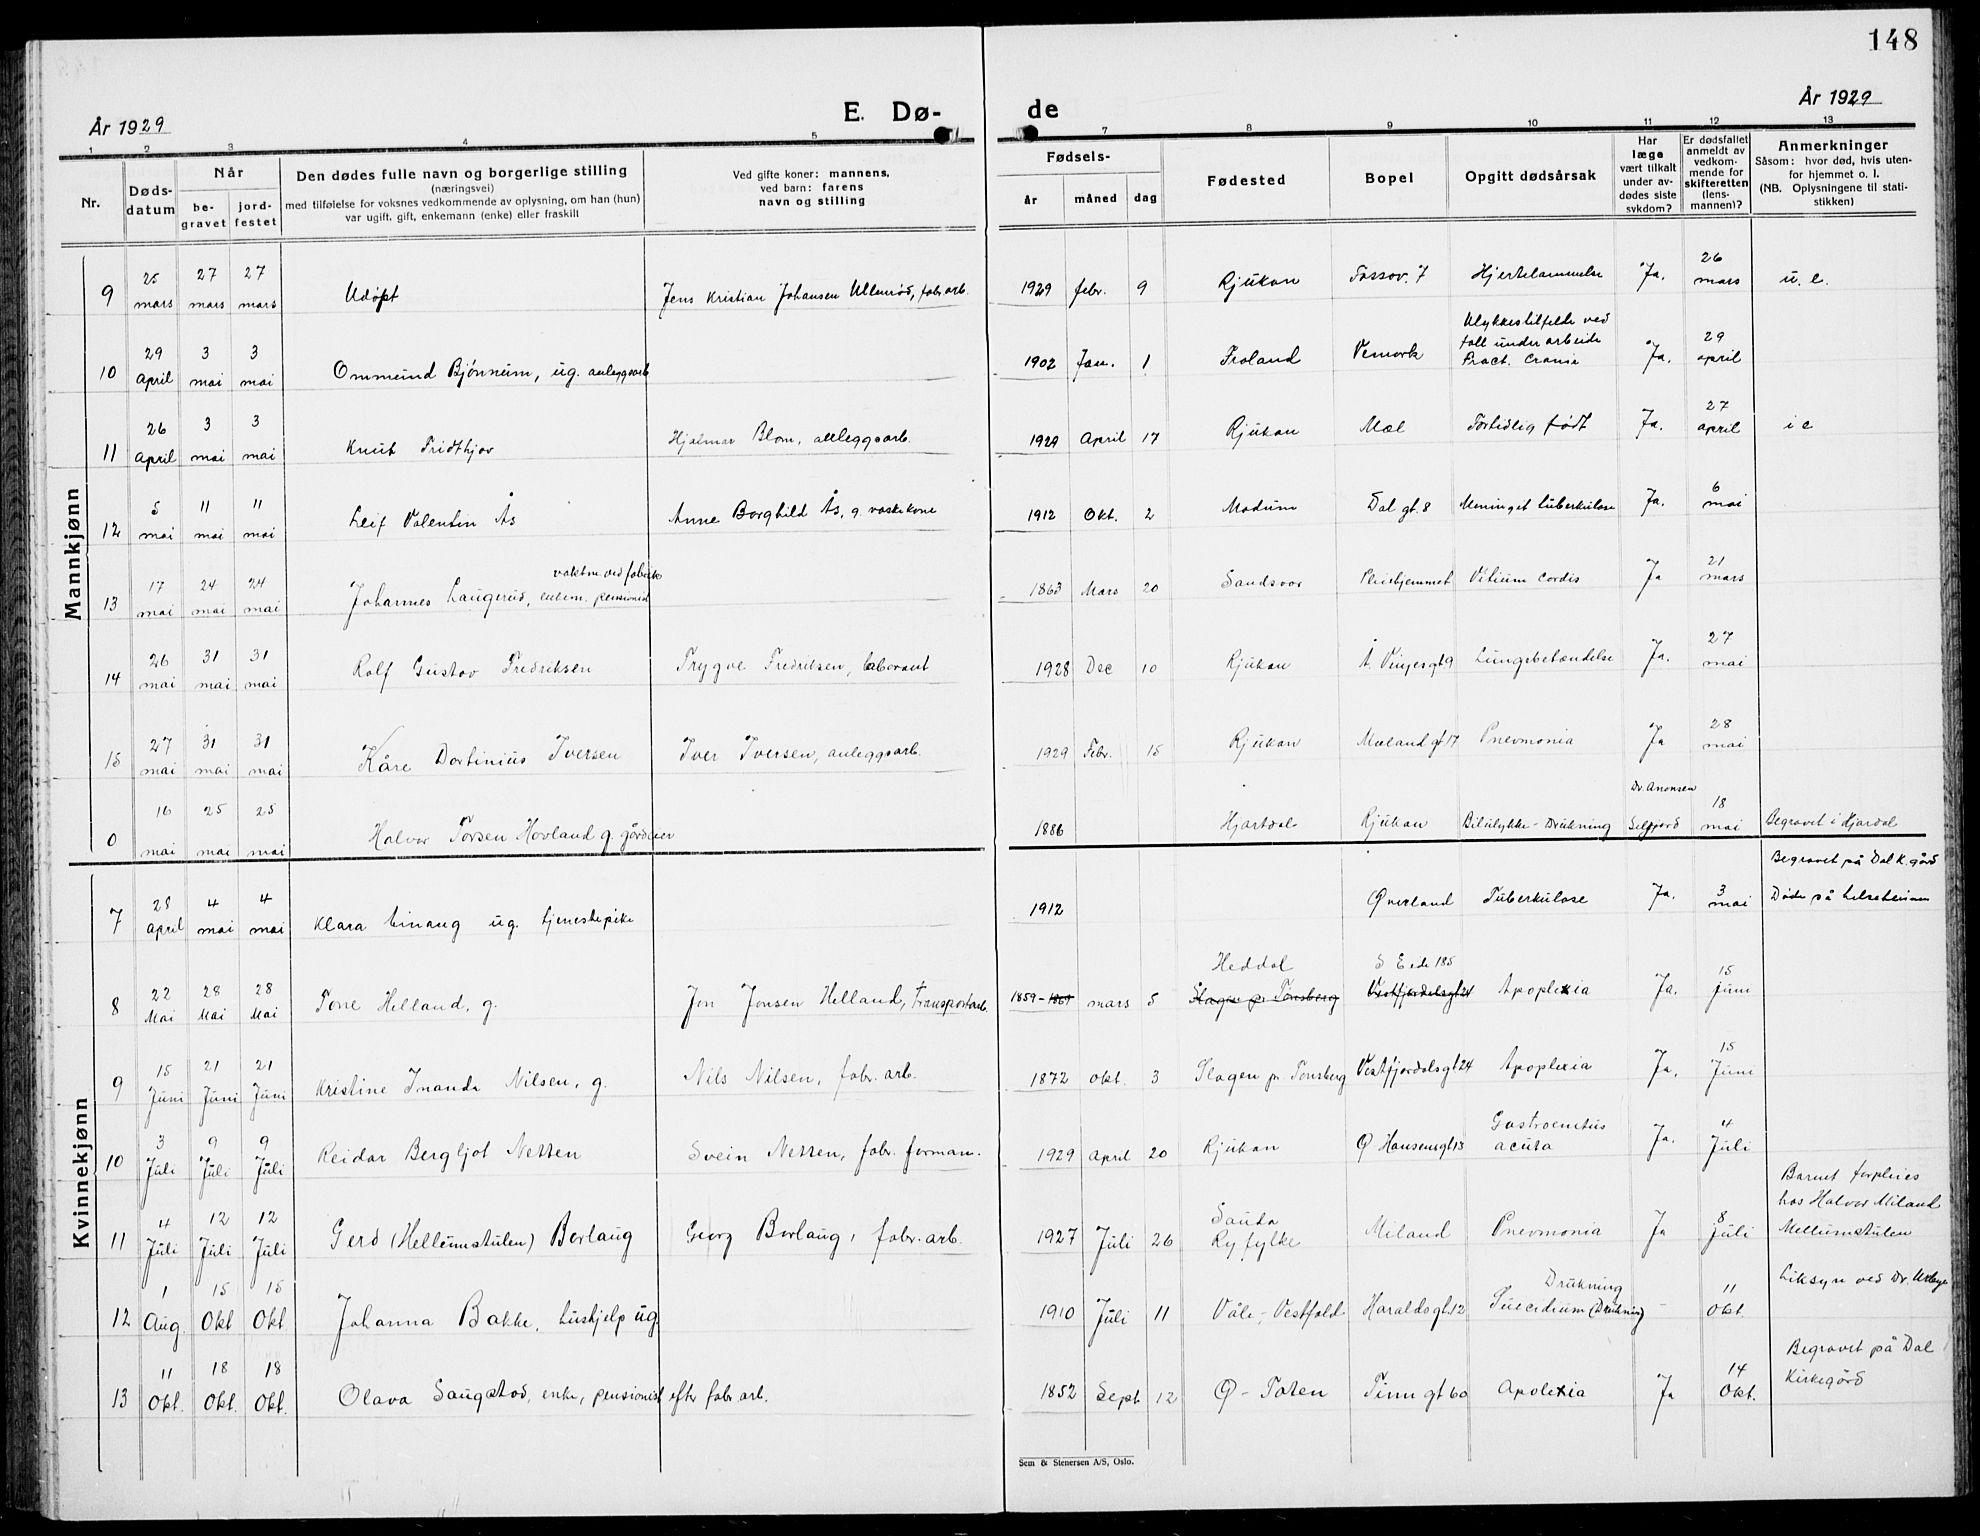 148
År 1929
E. Dø-
de
År 1929
1 2 3 4 5 7 8 9 10 11 12 13
Nr.
Døds-
datum
Når
be-
gravet
jord-
festet
Den dødes fulle navn og borgerlige stilling
(næringsvei)
med tilføielse for voksnes vedkommende av oplysning, om han (hun)
var ugift, gift, enkemann (enke) eller fraskilt
Ved gifte koner: mannens,
ved barn: farens
navn og stilling
Fødsels-
år måned dag
Fødested
Bopel
Opgitt dødsårsak
Har
læge
vært tilkalt
under av-
dødes siste
sykdom?
Er dødsfallet
anmeldt av
vedkom-
mende for
skifteretten
(lens-
mannen)?
Anmerkninger
Såsom: hvor død, hvis uten-
for hjemmet o. l.
(NB. Oplysningene til stati-
stikken)
Mannkjønn
9 25 mars 27 mars 27 mars Udøpt Jens Kristian Johansen Ullenrød, fabr. arb. 1929 febr. 9 Rjukan Fossov. 7 Hjertelammelse Ja. 26 mars u. e.
10 29 april 3 mai 3 mai Ommund Bjønneim, ug. anleggsarb 1902 Jan. 1 Froland Vemork Ulykkestilfelde ved
fall under arbeide
Fract. crania Ja. 29 april
11 26 april 3 mai 3 mai Knut Fridthjov Hjalmar Blom, anleggsarb. 1929 April 17 Rjukan Mæl Fortidlig født Ja. 27 april i e
12 5 mai 11 mai 11 mai Leif Valentin Ås Anne Borghild Ås, g. vaskekone 1912 Okt. 2 Modum Dal gt. 8 Meningit tuberkulose Ja. 6 mai
vaktm. ved fabrikk
13 17 mai 24 mai 24 mai Johannes Laugerud, enkem. pensionist 1863 Mars 20 Sandsvær Pleiehjemmet Vitium cordis Ja 21 mars
14 26 mai 31 mai 31 mai Rolf Gustav Fredriksen Trygve Fredriksen, laborant 1928 Dec 10 Rjukan Å. Vinjesgt 9 Lungebetændelse Ja. 27 mai
15 27 mai 31 mai 31 mai Kåre Dortinius Iversen Iver Iversen, anleggsarb. 1929 Febr. 15 Rjukan Mælandgt 17 Pnevmonia Ja 28 mai
0 16 mai 25 mai 25 mai Halvor Torsen Hovland g. gårdeier 1886 Hjartdal Rjukan Bilulykke - Drukning Dr. Aronsen
Seljord 18 mai Begravet i Hjardal
Kvinnekjønn
7 28 april 4 mai 4 mai Klara Einang ug. tjenestepike 1912 Øverland Tuberkulose Ja. 3 mai Begravet på Dal k. gård
Døde på
8 22 Mai 28 Mai 28 Mai Tone Helland, g. Jon Jonsen Helland, transportarb. 1859 - 1869 mars 5 Heddal
Slagen pr. Tønsberg S Eide 185
Vestfjordalsgt 24 Apoplexia Ja. 15 Juni
9 15 Juni 21 Juni 21 Juni Kristine Inanda Nilsen, g. Nils Nilsen, fabr. arb. 1872 okt. 3 Slagen pr. Tønsberg Vestfjordalsgt 24 Apoplexia Ja. 15 Juni
10 3 Juli 9 Juli 9 Juli Reidar Bergljot Netten Svein Netten, fabr. formann. 1929 April 20 Rjukan Ø Hansensgt 13 acuta Ja. 4 Juli
11 4 Juli 12 Juli 12 Juli Gerd (Hellumstulen) Borlaug Georg Borlaug, fabr. arb. 1927 Juli 26 Sauda
Ryfylke Miland Pnevmonia Ja 8 Juli Barnet forpleies
hos Halvor Miland
Mellumstulen
12 1 Aug. 15 Okt 15 Okt Johanna Bakke, hushjelp ug 1910 Juli 11 Våle, Vestfold Haraldsgt. 12 Drukning
Suicidium (Drukning) - 11 Okt. Liksyn ved Dr.
13 11 Okt. 18 Okt. 18 Okt. Olava Saugstad, enke, pensionist efter fabr. arb. 1852 Sept 12 Ø - Toten Tinngt 60 Apolexia Ja 14 Okt. Begravet på Dal
Kirkegård
Sem & Stenersen A/S, Oslo.